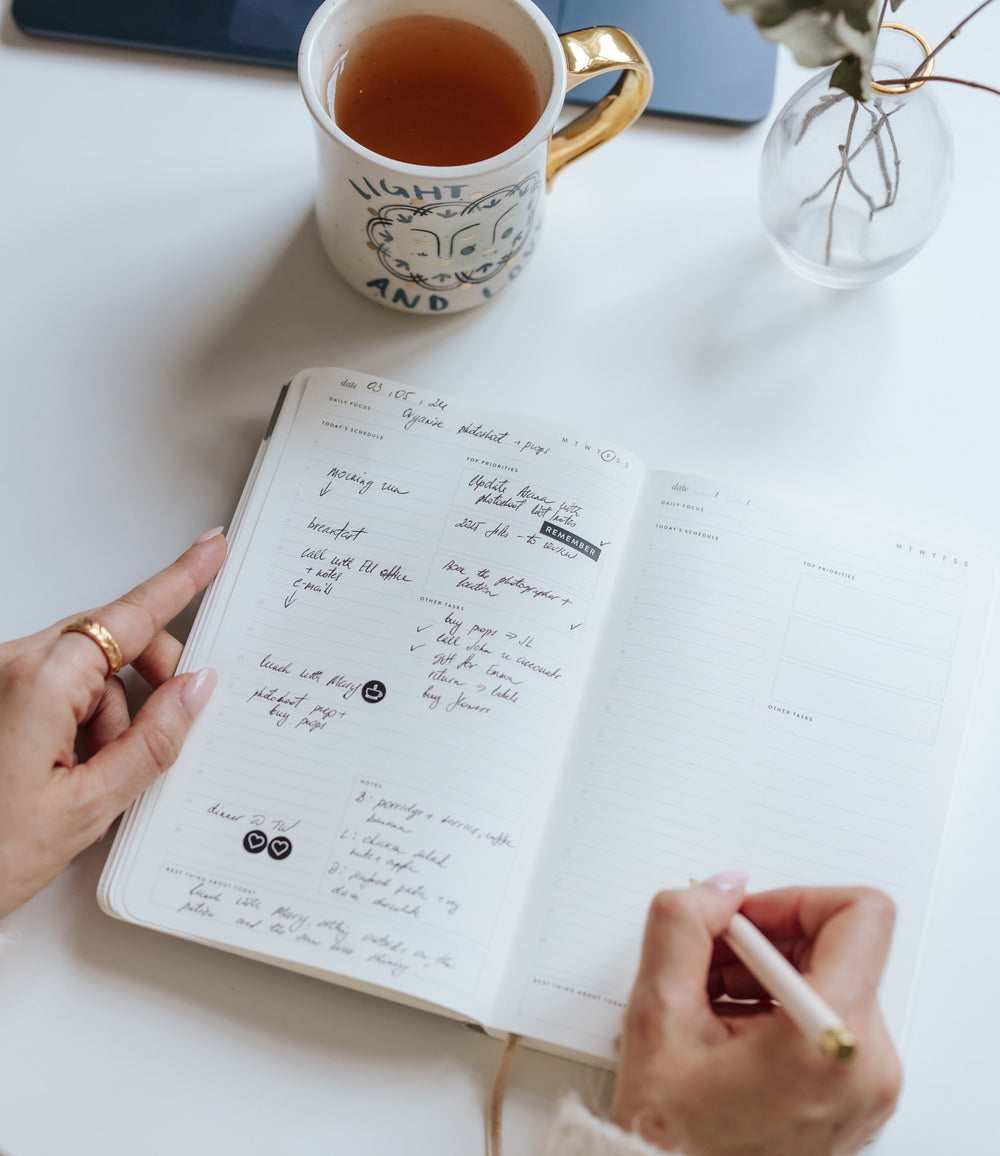 LIGHT
AND LO
date 03 , 05 , 24
DAILY FOCUS
Organise photoshoot + props
M T W T F S S
TODAY'S SCHEDULE
morning run
breakfast
call with EU office
+ notes
e-mails
lunch with Mary
photoshoot prep +
buy props
dinner @ TW
TOP PRIORITIES
Update Asana with
photoshoot list/notes
2025 files - to review
REMEMBER
Book the photographer +
location
OTHER TASKS
buy props => JL
call John re accounts
gift for Emma
return -> labels
buy flowers
NOTES
B: porridge + berries, coffee
banana
L: chicken salad
nuts + apple
D: seafood pasta + veg
dark chocolate
BEST THING ABOUT TODAY
lunch with Mary, sitting outside on the
patio and the sun was shining
date / /
DAILY FOCUS
M T W T F S S
TODAY'S SCHEDULE
TOP PRIORITIES
OTHER TASKS
BEST THING ABOUT TODAY